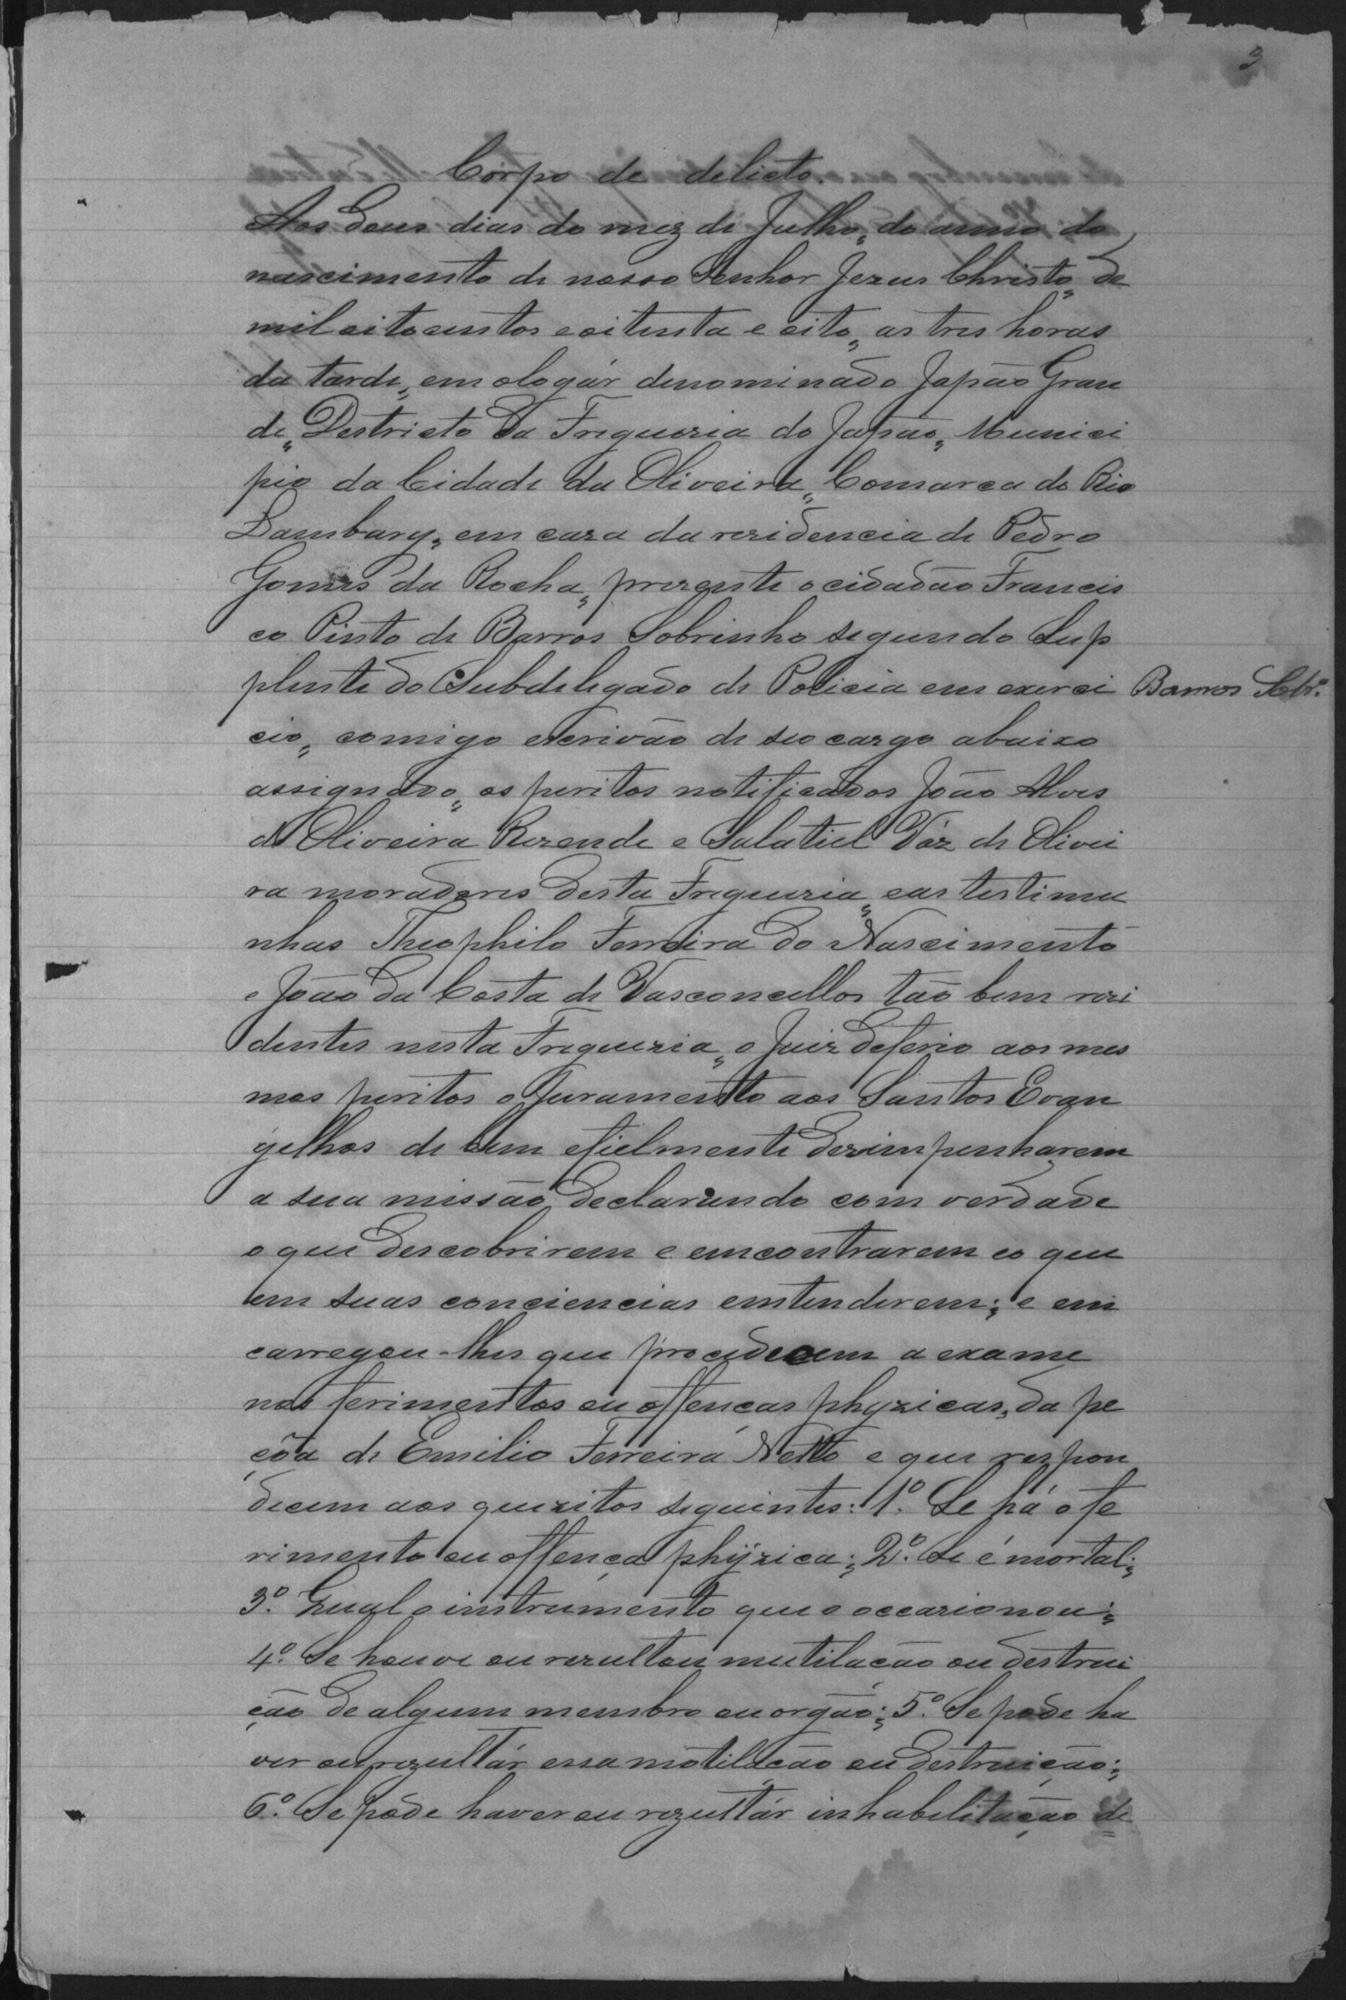 3
Corpo de delicto.
Aos dous dias do mez de Julho, do anno do
nascimento de nosso Senhor Jezus Christo, de
mil oitocentos e oitenta e oito, as tres horas
da tarde, em o logár denominado Japão Gran
de, Destricto da Freguezia do Japão, Munici
pio da Cidade da Oliveira, Comarca do Rio
Lambary, em caza da rezidencia de Pedro
Gomes da Rocha, prezente o cidadão Francis
co Pinto de Barros Sobrinho segundo Sup
plente do Subdelegado de Policia em exerci
Barros Sobr.º
cio, comigo escrivão de seo cargo abaixo
assignado, os peritos notificados João Alves
de Oliveira Rezende e Salatiel Váz de Olivei
ra moradores desta Freguezia, e as testimu
nhas Theophilo Ferreira do Nascimento
e João da Costa de Vasconcellos tão bem rezi
dentes nesta Freguezia, o Juiz deferio aos mes
mos peritos o juramento aos Santos Evan
gelhos de bem e fielmente dezimpenharem
a sua missão, declarando com verdade
o que descobrirem e emcontrarem e o que
em suas conciencias emtenderem; e em
carregou-lhes que procedecem a exame
nos ferimentos ou offenças phyzicas, da pe
çõa de Emilio Ferreira Netto e que respon
decem aos quezitos seguintes: 1.º Se há o fe
rimento ou offença phyzica; 2.º Se é mortal;
3.º Qual o instrumento que o occazionou;
4.º Se houve ou rezultou mutilação ou destrui
ção de algum membro ou orgão; 5.º Se pode ha
ver ou rezultár essa motilação ou destruição;
6.º Se pode haver ou rezultár inhabilitação de